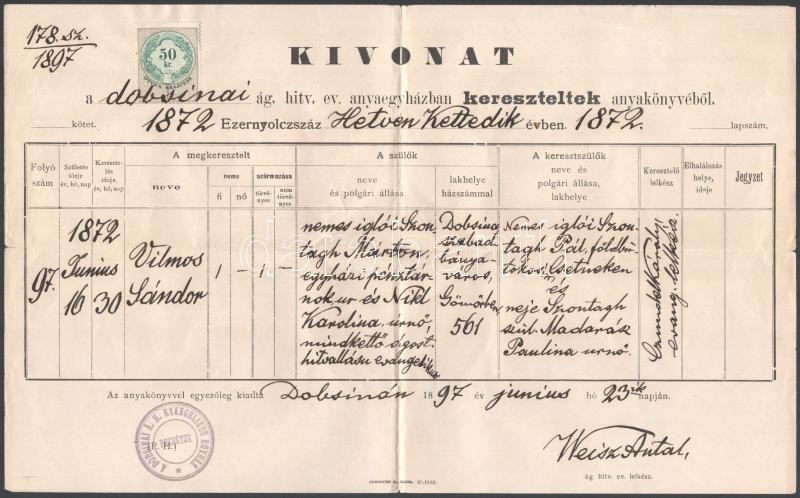 178. sz.
1897
50
kr.
KIVONAT
a dobsinai ág. hitv. ev. anyaegyházban kereszteltek anyakönyvéből.
kötet. 1872 Ezernyolczszáz Hetven Kettedik évben 1872. lapszám.
Folyó szám
Születés ideje év, hó, nap
Keresztelés ideje, év, hó, nap
A megkeresztelt
neve
neme
fi
nő
származása
törvényes
nem törvényes
A szülők
neve és polgári állása
lakhelye házszámmal
A keresztszülők
neve és polgári állása, lakhelye
Keresztelő lelkész
Elhalálozás helye, ideje
Jegyzet
97.
1872
Junius
16 30
Vilmos
Sándor
1 – 1 –
nemes iglói Szon-
tagh Márton,
egyházi pénztár-
nok ur és Nikl
Karolina urnő,
mindkettő ágost.
hitvallásu evangelikus
Dobsina,
szabad
bánya-
város,
Gömörben
561
Nemes iglói Szon-
tagh Pál, földbir-
tokos Csetneken
és
neje Szontagh
szül. Madarász
Paulina urnő.
Károly
evang. lelkész.
Az anyakönyvvel egyezőleg kiadta Dobsinán 1897 év junius hó 23ik napján.
A DOBSINAI Á. H. EVANGELIKUS EGYHÁZ
(P. H.)
Weisz Antal,
ág. hitv. ev. lelkész.